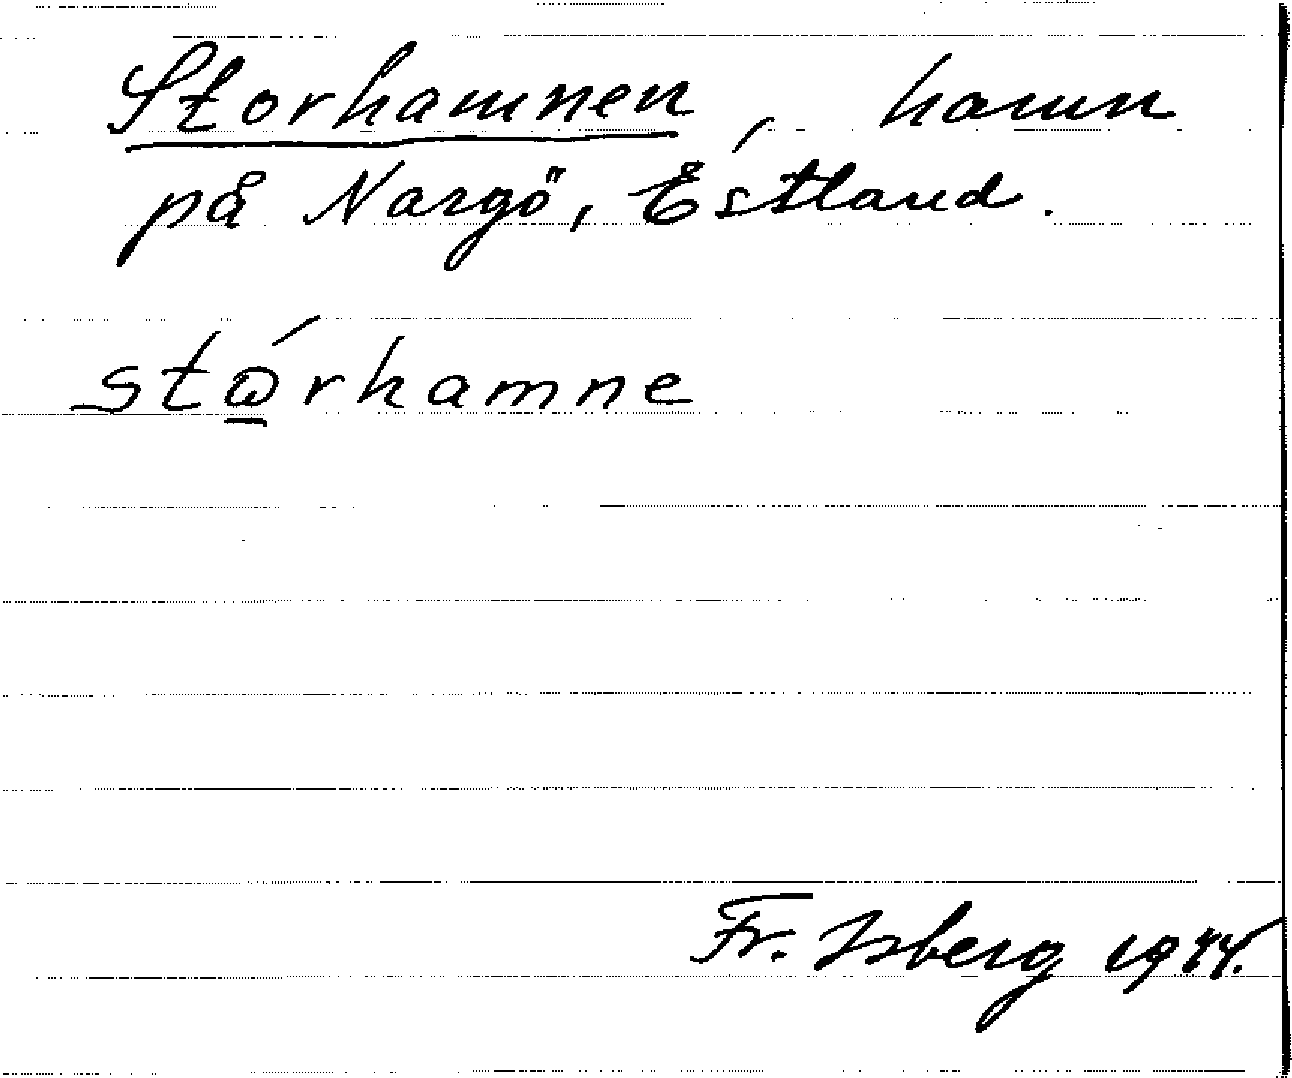 Storhamnen, hamn
på Nargö, Estland.
stώ̲rhamne
Fr. Isberg 1944.